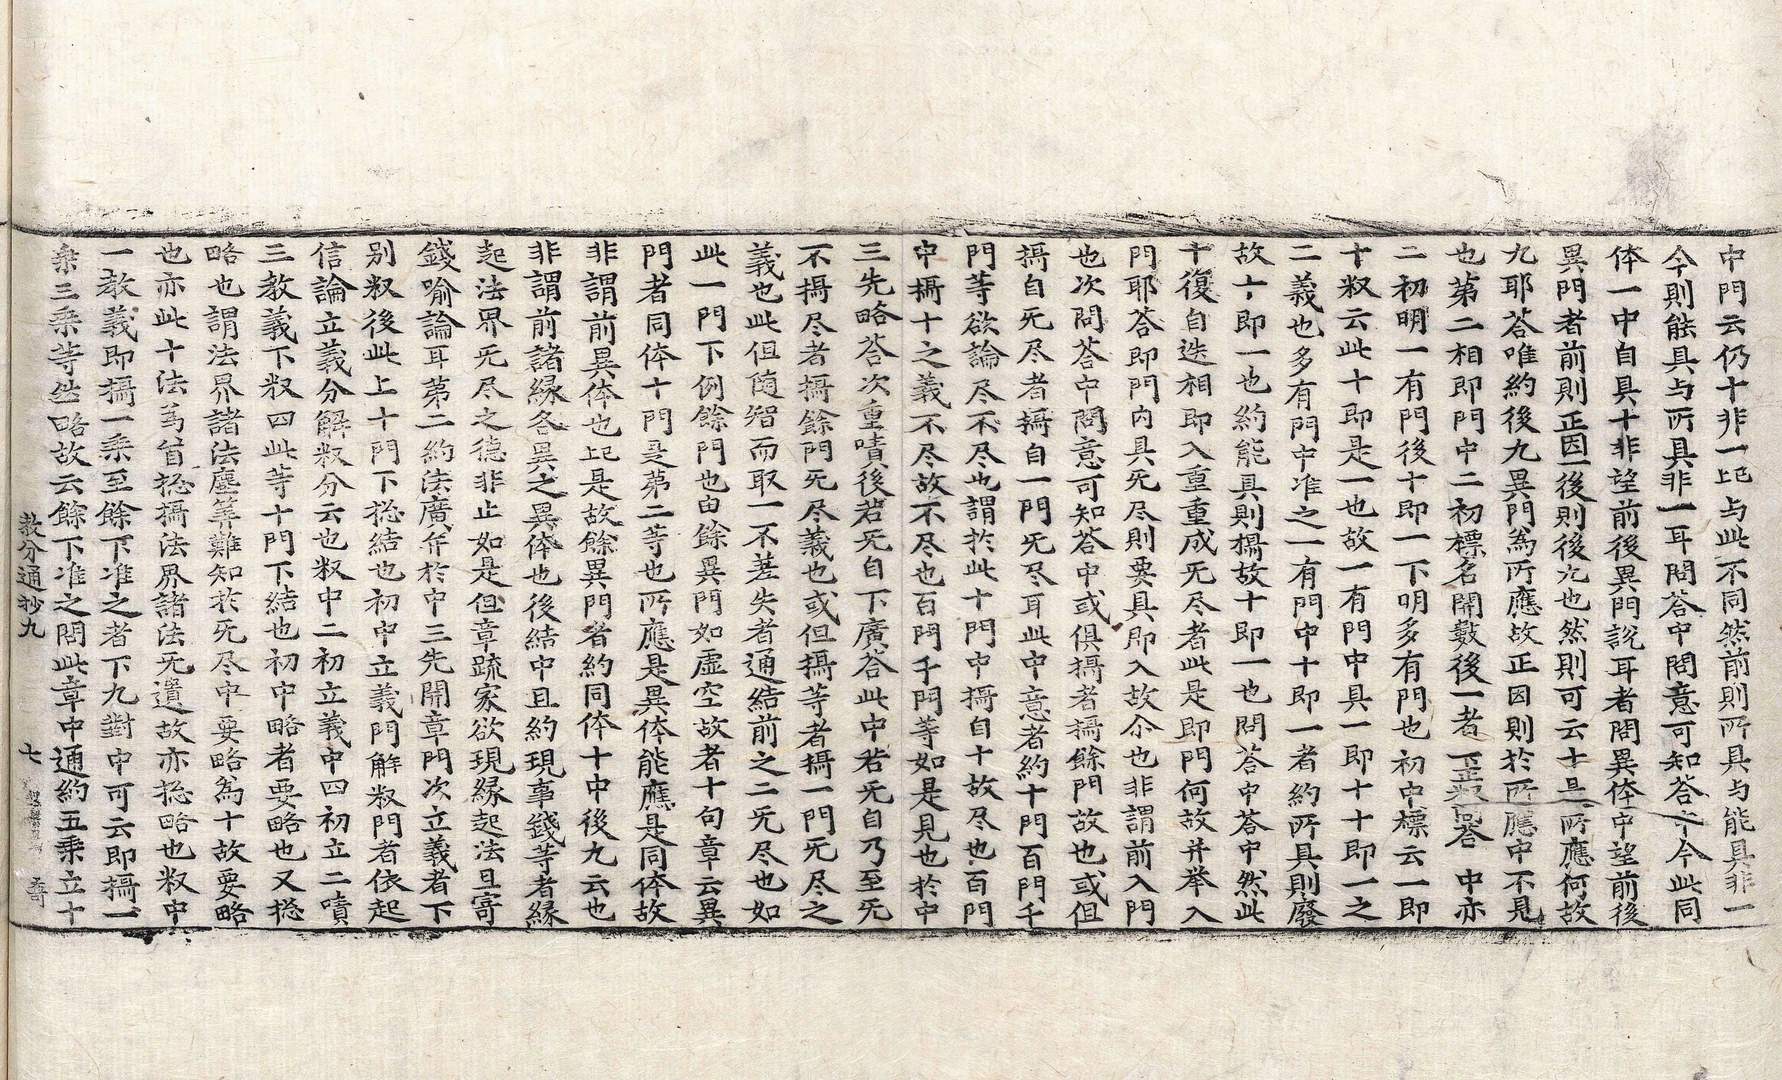 中門云仍十非一記与此不同然前則所具与能具非一
今則能具与所具非一耳問荅中問意可知荅中今此同
体一中自具十非望前後異門說耳者問異体中望前後
異門者前則正因一後則後九也然則可云十是所應何故
九耶荅唯約後九異門為所應故正因則於所應中不見
也第二相即門中二初標名開數後一者 荅 中亦
二初明一有門後十即一下明多有門也初中標云一即
十釈云此十即是一也故一有門中具一即十十即一之
二義也多有門中准之一有門中十即一者約所具則廢
故十即一也約能具則攝故十即一也問荅中荅中然此
十復自迭相即入重重成无尽者此是即門何故并举入
門耶荅即門內具无尽則要具即入故尒也非謂前入門
也次問荅中問意可知荅中或俱攝者攝餘門故也或但
攝自无尽者攝自一門无尽耳此中意者約十門百門千
門等欲論尽不尽也謂於此十門中攝自十故尽也百門
中攝十之義不尽故不尽也百門千門等如是見也於中
三先略荅次重嘖後若无自下廣荅此中若无自乃至无
不攝尽者攝餘門无尽義也或但攝等者攝一門无尽之
義也此但随智而取一不差失者通結前之二无尽也如
此一門下例餘門也由餘異門如虛空故者十句章云異
門者同体十門是第二等也所應是異体能應是同体故
非謂前異体也記是故餘異門者約同体十中後九云也
非謂前諸緣各異之異体也後結中且約現事錢等者緣
起法界无尽之德非止如是但章䟽家欲現緣起法且寄
錢喻論耳第二約法廣弁於中三先開章門次立義者下
別釈後此上十門下捴結也初中立義門解釈門者依起
信論立義分解釈分云也釈中二初立義中四初立二嘖
三教義下釈四此等十門下結也初中略者要略也又捴
略也謂法界諸法塵筭難知於无尽中要略為十故要略
也亦此十法為首捴攝法界諸法无遺故亦捴略也釈中
一教義即攝一乘至餘下准之者下九對中可云即攝一
乘三乘等然略故云餘下准之問此章中通約五乘立十
教分通抄九　七